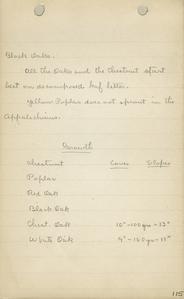 Black Oaks.
All the Oaks and the Chestnut sprout
best on decomposed leaf litter.
Yellow Poplar does not sprout in the
Appalachians.
Growth
Chestnut Coves Slopes
Poplar
Red Oak
Black Oak
Chest. Oak 10"-100 yrs - 13"
White Oak 9"-150 yrs - 11"
115